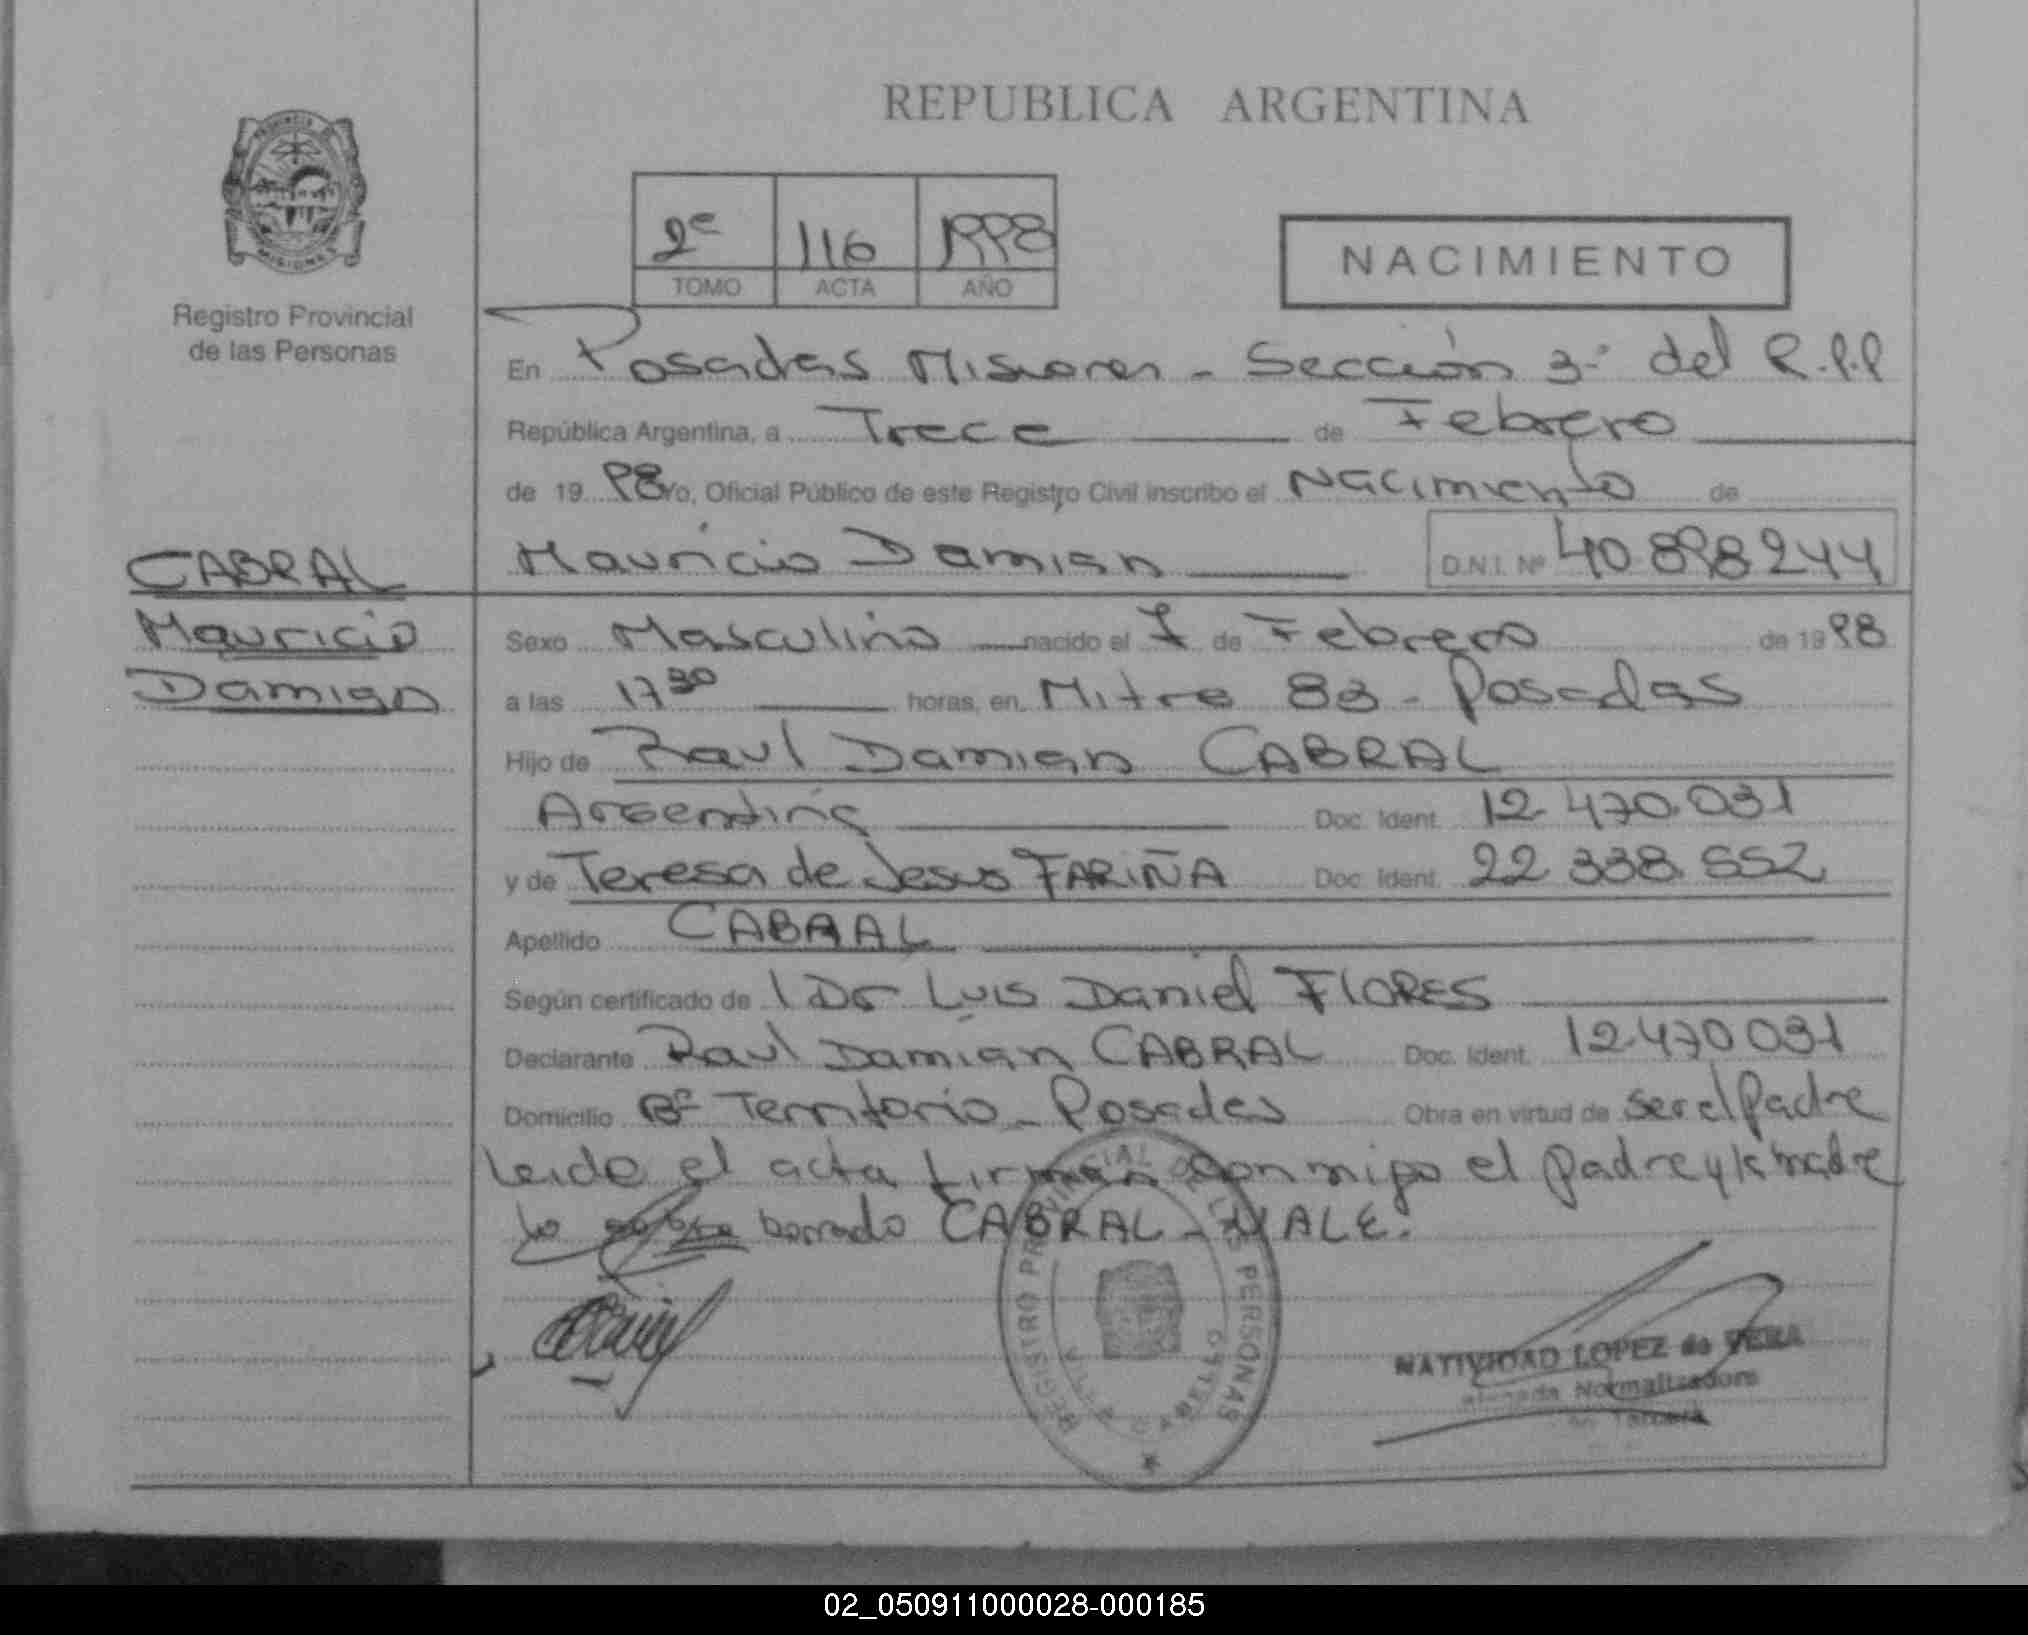 REPUBLICA ARGENTINA
PROVINCIA DE MISIONES
Registro Provincial
de las Personas
2º 116 1998
TOMO ACTA AÑO
NACIMIENTO
En Posadas Misiones - Sección 3ª del R.P.P
República Argentina, a Trece de Febrero
de 1998 Yo, Oficial Público de este Registro Civil inscribo el Nacimiento de
Mauricio Damian D.N.I. Nº 40.898244
CABRAL
Mauricio
Damian
Sexo Masculino nacido el 7 de Febrero de 1998
a las 17 30 horas, en Mitre 83 - Posadas
Hijo de Raul Damian CABRAL
Argentina Doc. Ident. 12.470.031
y de Teresa de Jesus FARIÑA Doc. Ident. 22.338.552
Apellido CABRAL
Según certificado de Dr Luis Daniel FLORES
Declarante Raul Damian CABRAL Doc. Ident. 12.470031
Domicilio Bº Territorio - Posadas Obra en virtud de ser el padre
Leido el acta firman conmigo el padre y la madre
lo borrado CABRAL - VALE.
REGISTRO PROVINCIAL DE LAS PERSONAS
NATIVIDAD LOPEZ de VERA
Normalizadora
02_050911000028-000185